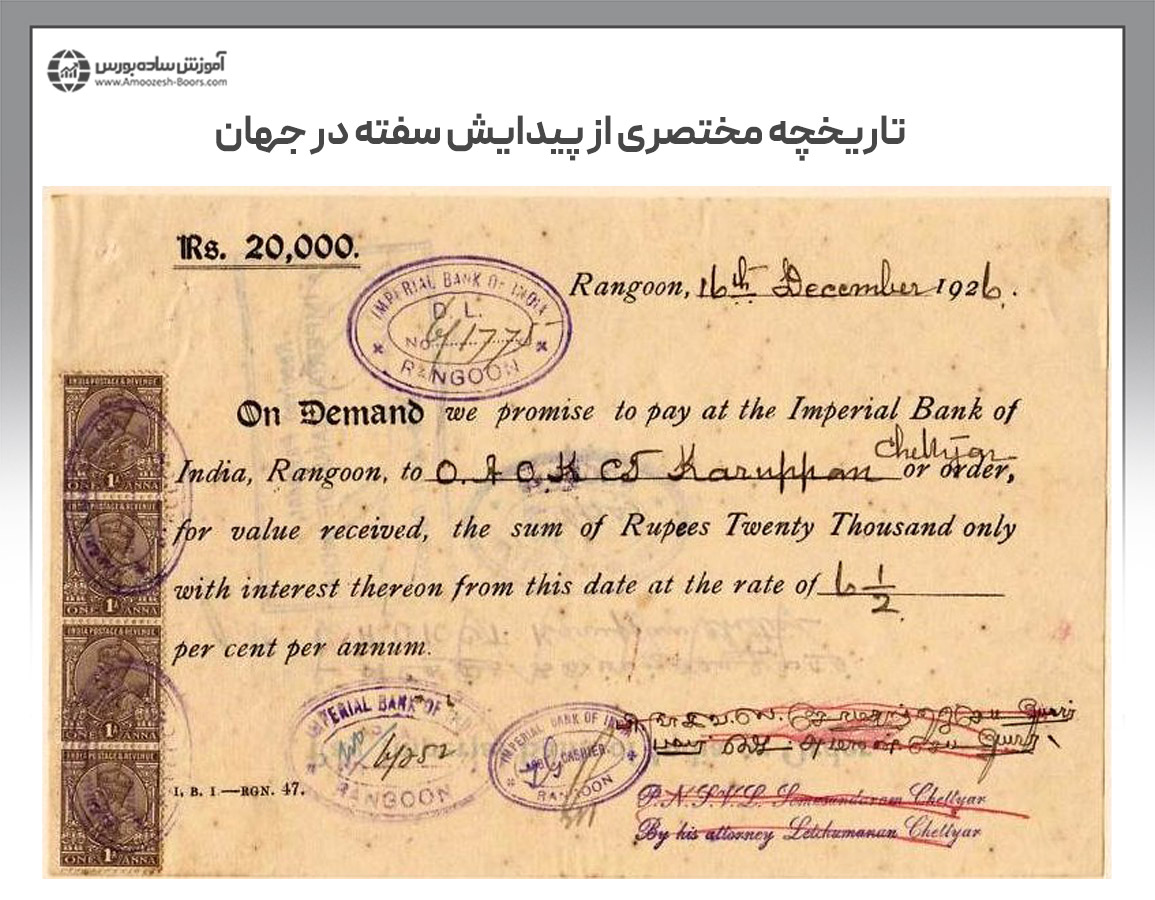 آموزش ساده بورس
www.Amoozesh-Boors.com
تاریخچه مختصری از پیدایش سفته در جهان
Rs. 20,000.
IMPERIAL BANK OF INDIA
D. L.
No. 6/1775
RANGOON
Rangoon, 16th December 1926.
On Demand we promise to pay at the Imperial Bank of
Chettyar
India, Rangoon, to O. A. O. K. CT Karuppan or order,
for value received, the sum of Rupees Twenty Thousand only
with interest thereon from this date at the rate of 6 1/2
per cent per annum.
INDIA POSTAGE & REVENUE
1A
ONE ANNA
1A
ONE ANNA
INDIA POSTAGE & REVENUE
1A
ONE ANNA
1A
ONE ANNA
IMPERIAL BANK OF
RANGOON
IMPERIAL BANK OF INDIA
CASHIER
RANGOON
I. B. I.—RGN. 47.
P. N. S. V. L. Somasundaram Chettyar
By his attorney Letchumanan Chettyar